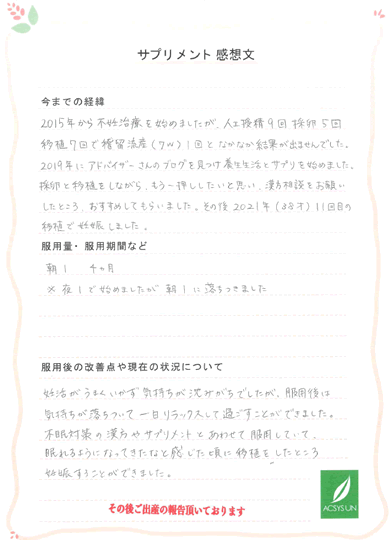 サプリメント 感想文
今までの経緯
2015年から不妊治療を始めましたが、人工授精9回 採卵5回
移植7回で稽留流産(7w)1回となかなか結果が出ませんでした。
2019年にアドバイザーさんのブログを見つけ養生生活とサプリを始めました。
採卵と移植をしながら、もう一押ししたいと思い、漢方相談をお願い
したところ、おすすめしてもらいました。その後2021年(38才)11回目の
移植で妊娠しました。
服用量・服用期間など
朝1 4ヶ月
※夜1で始めましたが朝1に落ちつきました
服用後の改善点や現在の状況について
妊活がうまくいかず気持ちが沈みがちでしたが、服用後は
気持ちが落ちついて一日リラックスして過ごすことができました。
不眠対策の漢方やサプリメントとあわせて服用していて、
眠れるようになってきたなと感じた頃に移植をしたところ
妊娠することができました。
その後ご出産の報告頂いております
ACSYS UN